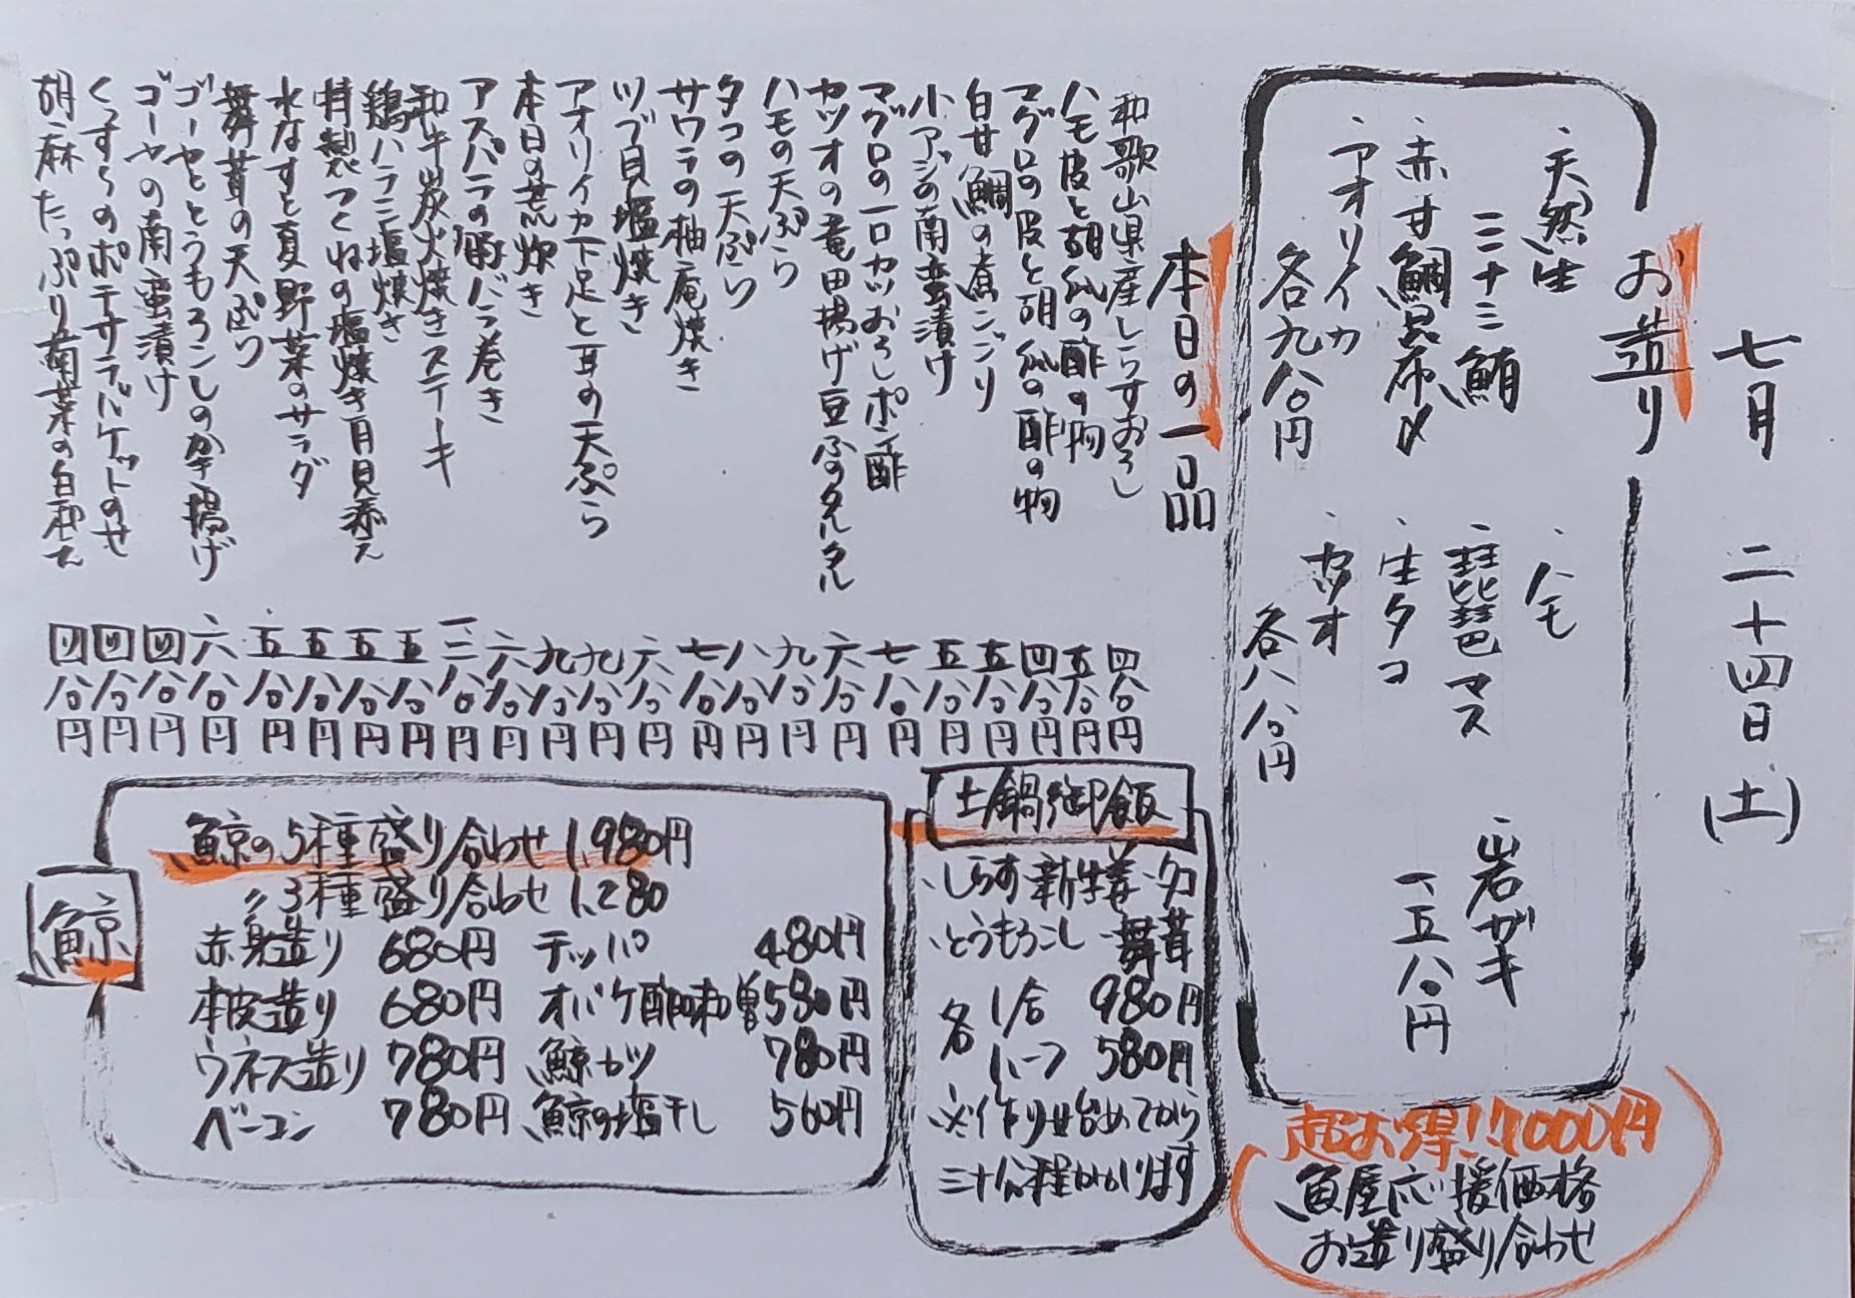 七月 二十四日 (土)
お造り
・天然生
ミナミ鮪
・赤甘鯛昆布〆
・アオリイカ
各九八〇円
・ハモ
・琵琶マス
・生タコ
・カツオ
各八八〇円
・岩ガキ
一五八〇円
超お得!!1000円
魚屋応援価格
お造り盛り合わせ
本日の一品
和歌山県産しらすおろし 四八〇円
ハモ皮と胡瓜の酢の物 五八〇円
マグロの皮と胡瓜の酢の物 四八〇円
白甘鯛の煮こごり 五八〇円
小アジの南蛮漬け 五八〇円
マグロの一口カツおろしポン酢 七八〇円
カツオの竜田揚げ豆ふのタルタル 六八〇円
ハモの天ぷら 九八〇円
タコの天ぷら 八八〇円
サワラの柚庵焼き 七八〇円
ツブ貝塩焼き 六八〇円
アオリイカ下足と耳の天ぷら 九八〇円
本日の荒炊き 九八〇円
アスパラの豚バラ巻き 六八〇円
和牛炭火焼きステーキ 一二八〇円
鶏ハラミ塩焼き 五八〇円
特製つくねの塩焼き月見添え 五八〇円
水なすと夏野菜のサラダ 五八〇円
舞茸の天ぷら 五八〇円
ゴーヤととうもろこしのかき揚げ 六八〇円
ゴーヤの南蛮漬け 四八〇円
のポテサラバケットのせ 四八〇円
胡麻たっぷり菊菜の白和え 四八〇円
土鍋御飯
・しらす・新生姜・タコ
・とうもろこし・舞茸
各 1合 980円
ハーフ 580円
※作り始めてから
三十分程かかります
鯨
鯨の5種盛り合わせ 1,980円
〃3種盛り合わせ 1,280
赤身造り 680円 テッパ 480円
本皮造り 680円 オバケ酢味噌 580円
ウネス造り 780円 鯨カツ 780円
ベーコン 780円 鯨の塩干し 560円